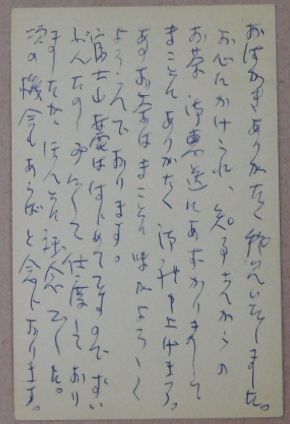 おはがきありがたく拝けんいたしました。
お心にかけられ、知る方からの
お茶御恵送にあずかりまして
まことにありがたく御礼申上げます。
あるお茶はまことに味がよろしく
よろこんでおります。
富士山麓ははじめてですのでずい
ぶんたのしみにして仕度しており
ましたがほんとに残念でした。
次の機会もあらばと念じおります。